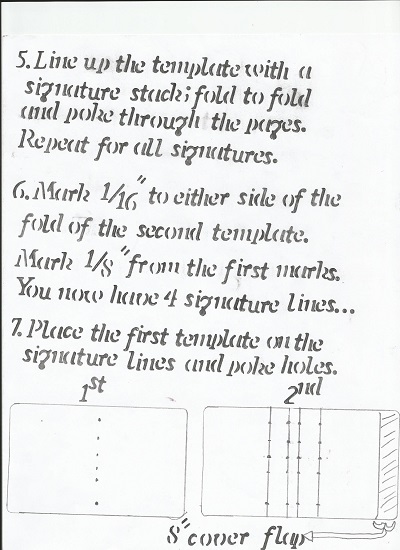 5. Line up the template with a
signature stack; fold to fold
and poke through the pages.
Repeat for all signatures.
6. Mark 1/16" to either side of the
fold of the second template.
Mark 1/8" from the first marks.
You now have 4 signature lines...
7. Place the first template on the
signature lines and poke holes.
1st 2nd
8" cover flap